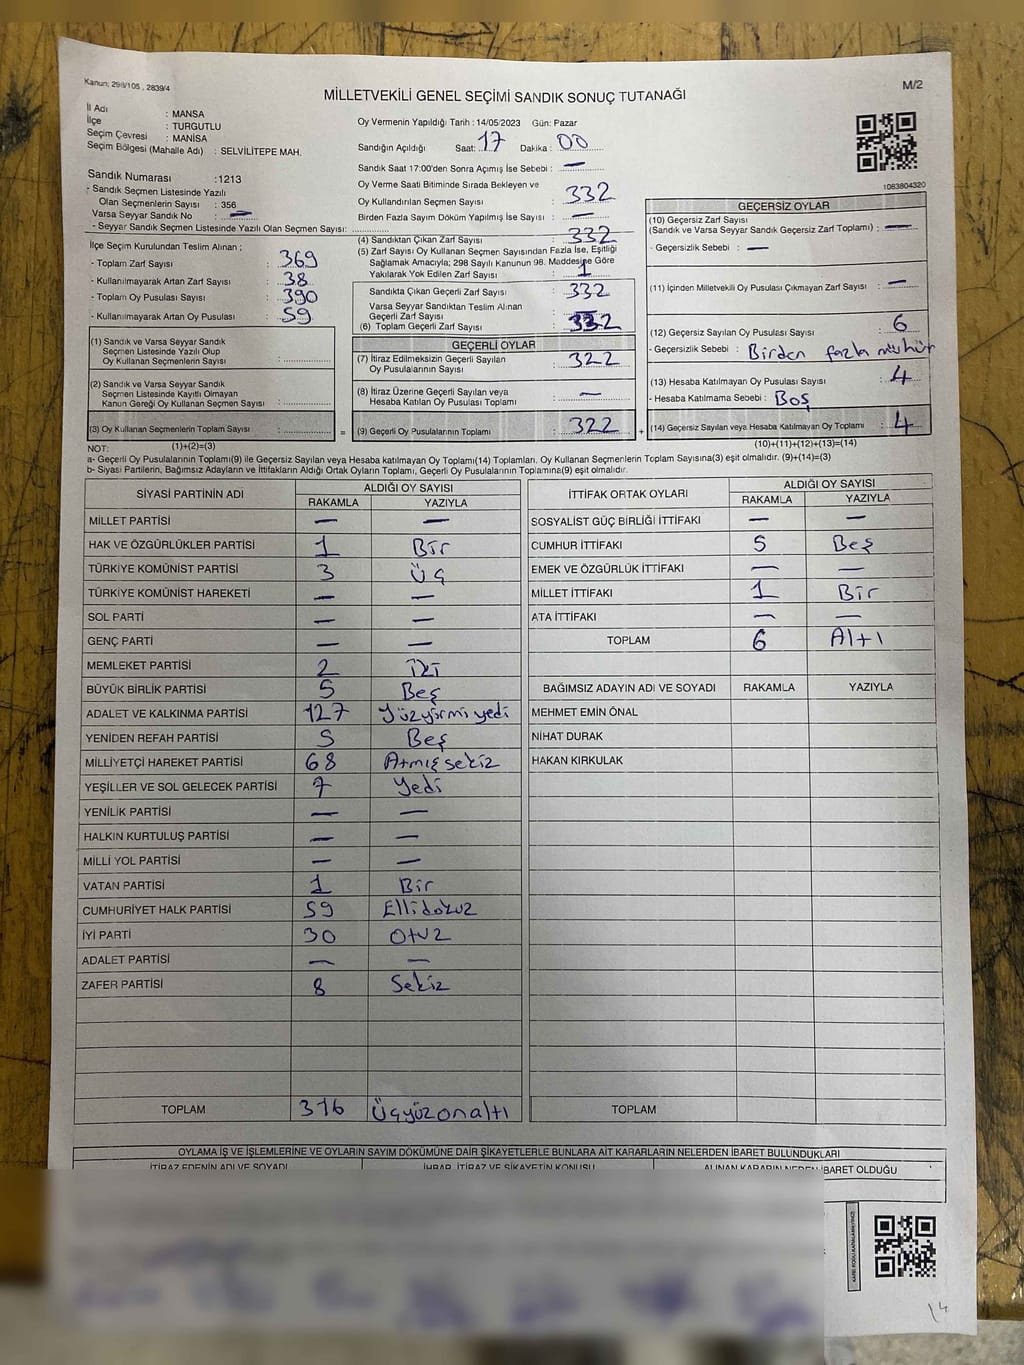 Kanun: 298/105 , 2839/4
M/2
MİLLETVEKİLİ GENEL SEÇİMİ SANDIK SONUÇ TUTANAĞI
İl Adı : MANSA
İlçe : TURGUTLU
Seçim Çevresi : MANİSA
Seçim Bölgesi (Mahalle Adı) : SELVİLİTEPE MAH.
Sandık Numarası :1213
- Sandık Seçmen Listesinde Yazılı
Olan Seçmenlerin Sayısı : 356
Varsa Seyyar Sandık No : —
- Seyyar Sandık Seçmen Listesinde Yazılı Olan Seçmen Sayısı:
İlçe Seçim Kurulundan Teslim Alınan ;
- Toplam Zarf Sayısı : 369
- Kullanılmayarak Artan Zarf Sayısı : 38
- Toplam Oy Pusulası Sayısı : 390
- Kullanılmayarak Artan Oy Pusulası : 59
(1) Sandık ve Varsa Seyyar Sandık
Seçmen Listesinde Yazılı Olup
Oy Kullanan Seçmenlerin Sayısı :
(2) Sandık ve Varsa Seyyar Sandık
Seçmen Listesinde Kayıtlı Olmayan
Kanun Gereği Oy Kullanan Seçmen Sayısı :
(3) Oy Kullanan Seçmenlerin Toplam Sayısı :
Oy Vermenin Yapıldığı Tarih : 14/05/2023 Gün: Pazar
Sandığın Açıldığı Saat: 17 Dakika : 00
Sandık Saat 17:00'den Sonra Açmış İse Sebebi : —
Oy Verme Saati Bitiminde Sırada Bekleyen ve
Oy Kullandırılan Seçmen Sayısı : 332
Birden Fazla Sayım Döküm Yapılmış İse Sayısı : —
(4) Sandıktan Çıkan Zarf Sayısı : 332
(5) Zarf Sayısı Oy Kullanan Seçmen Sayısından Fazla İse, Eşitliği
Sağlamak Amacıyla; 298 Sayılı Kanunun 98. Maddesine Göre
Yakılarak Yok Edilen Zarf Sayısı : 1
Sandıkta Çıkan Geçerli Zarf Sayısı : 332
Varsa Seyyar Sandıktan Teslim Alınan
Geçerli Zarf Sayısı : —
(6) Toplam Geçerli Zarf Sayısı : 332
GEÇERLİ OYLAR
(7) İtiraz Edilmeksizin Geçerli Sayılan
Oy Pusulalarının Sayısı : 322
(8) İtiraz Üzerine Geçerli Sayılan veya
Hesaba Katılan Oy Pusulası Toplamı : —
= (9) Geçerli Oy Pusulalarının Toplamı : 322 +
1083804320
GEÇERSİZ OYLAR
(10) Geçersiz Zarf Sayısı
(Sandık ve Varsa Seyyar Sandık Geçersiz Zarf Toplamı) : —
- Geçersizlik Sebebi : —
(11) İçinden Milletvekili Oy Pusulası Çıkmayan Zarf Sayısı : —
(12) Geçersiz Sayılan Oy Pusulası Sayısı : 6
- Geçersizlik Sebebi : Birden fazla mühür
(13) Hesaba Katılmayan Oy Pusulası Sayısı : 4
- Hesaba Katılmama Sebebi : Boş
(14) Geçersiz Sayılan veya Hesaba Katılmayan Oy Toplamı : 4
NOT: (1)+(2)=(3)
(10)+(11)+(12)+(13)=(14)
a- Geçerli Oy Pusulalarının Toplamı(9) ile Geçersiz Sayılan veya Hesaba katılmayan Oy Toplamı(14) Toplamları, Oy Kullanan Seçmenlerin Toplam Sayısına(3) eşit olmalıdır. (9)+(14)=(3)
b- Siyasi Partilerin, Bağımsız Adayların ve İttifakların Aldığı Ortak Oyların Toplamı, Geçerli Oy Pusulalarının Toplamına(9) eşit olmalıdır.
SİYASİ PARTİNİN ADI ALDIĞI OY SAYISI
RAKAMLA YAZIYLA
MİLLET PARTİSİ — —
HAK VE ÖZGÜRLÜKLER PARTİSİ 1 Bir
TÜRKİYE KOMÜNİST PARTİSİ 3 Üç
TÜRKİYE KOMÜNİST HAREKETİ — —
SOL PARTİ — —
GENÇ PARTİ — —
MEMLEKET PARTİSİ 2 İki
BÜYÜK BİRLİK PARTİSİ 5 Beş
ADALET VE KALKINMA PARTİSİ 127 Yüzyirmi yedi
YENİDEN REFAH PARTİSİ 5 Beş
MİLLİYETÇİ HAREKET PARTİSİ 68 Atmış sekiz
YEŞİLLER VE SOL GELECEK PARTİSİ 7 Yedi
YENİLİK PARTİSİ — —
HALKIN KURTULUŞ PARTİSİ — —
MİLLİ YOL PARTİSİ — —
VATAN PARTİSİ 1 Bir
CUMHURİYET HALK PARTİSİ 59 Ellidokuz
İYİ PARTİ 30 Otuz
ADALET PARTİSİ — —
ZAFER PARTİSİ 8 Sekiz
TOPLAM 316 Üçyüzonaltı
İTTİFAK ORTAK OYLARI ALDIĞI OY SAYISI
RAKAMLA YAZIYLA
SOSYALİST GÜÇ BİRLİĞİ İTTİFAKI — —
CUMHUR İTTİFAKI 5 Beş
EMEK VE ÖZGÜRLÜK İTTİFAKI — —
MİLLET İTTİFAKI 1 Bir
ATA İTTİFAKI — —
TOPLAM 6 Altı
BAĞIMSIZ ADAYIN ADI VE SOYADI RAKAMLA YAZIYLA
MEHMET EMİN ÖNAL
NİHAT DURAK
HAKAN KIRKULAK
TOPLAM
OYLAMA İŞ VE İŞLEMLERİNE VE OYLARIN SAYIM DÖKÜMÜNE DAİR ŞİKAYETLERLE BUNLARA AİT KARARLARIN NELERDEN İBARET BULUNDUKLARI
İTİRAZ EDENİN ADI VE SOYADI İHBAR, İTİRAZ VE ŞİKAYETİN KONUSU ALINAN KARARIN NEDEN İBARET OLDUĞU